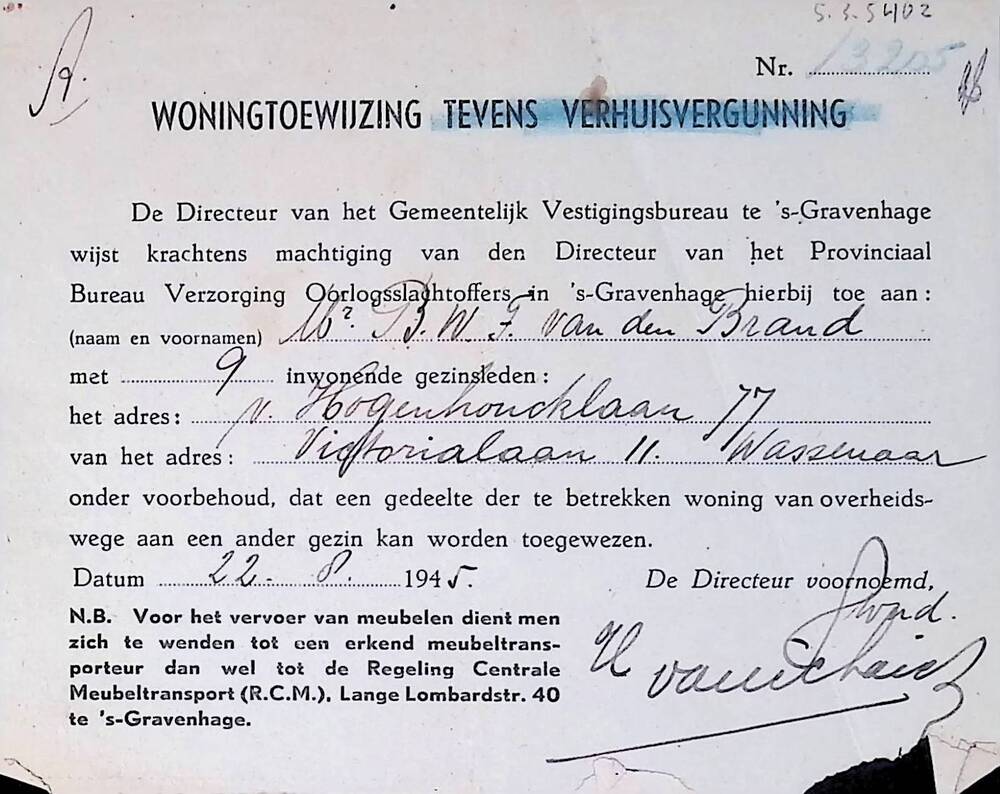 5.3.5402
Nr. 13205
WONINGTOEWIJZING TEVENS VERHUISVERGUNNING
De Directeur van het Gemeentelijk Vestigingsbureau te 's-Gravenhage
wijst krachtens machtiging van den Directeur van het Provinciaal
Bureau Verzorging Oorlogsslachtoffers in 's-Gravenhage hierbij toe aan:
(naam en voornamen) Mr. B. W. F. van den Brand
met 9 inwonende gezinsleden:
het adres: v. Hogenhoucklaan 77
van het adres: Victorialaan 11. Wassenaar
onder voorbehoud, dat een gedeelte der te betrekken woning van overheids-
wege aan een ander gezin kan worden toegewezen.
Datum 22. 8. 1945. De Directeur voornoemd,
N.B. Voor het vervoer van meubelen dient men
zich te wenden tot een erkend meubeltrans-
porteur dan wel tot de Regeling Centrale
Meubeltransport (R.C.M.), Lange Lombardstr. 40
te 's-Gravenhage.